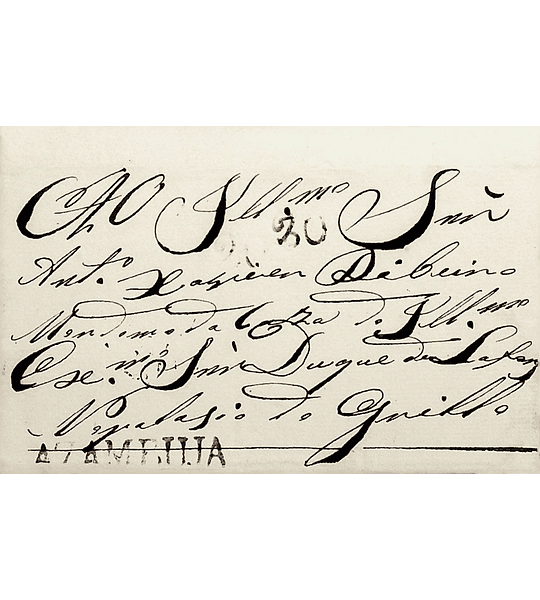 Ao Illmo Snr
20
Anto Xavier Ribeiro
Mordomo da Caza do Illmo
Exmo Snr Duque de Lafoẽs
No palasio do Grillo
AZAMBUJA